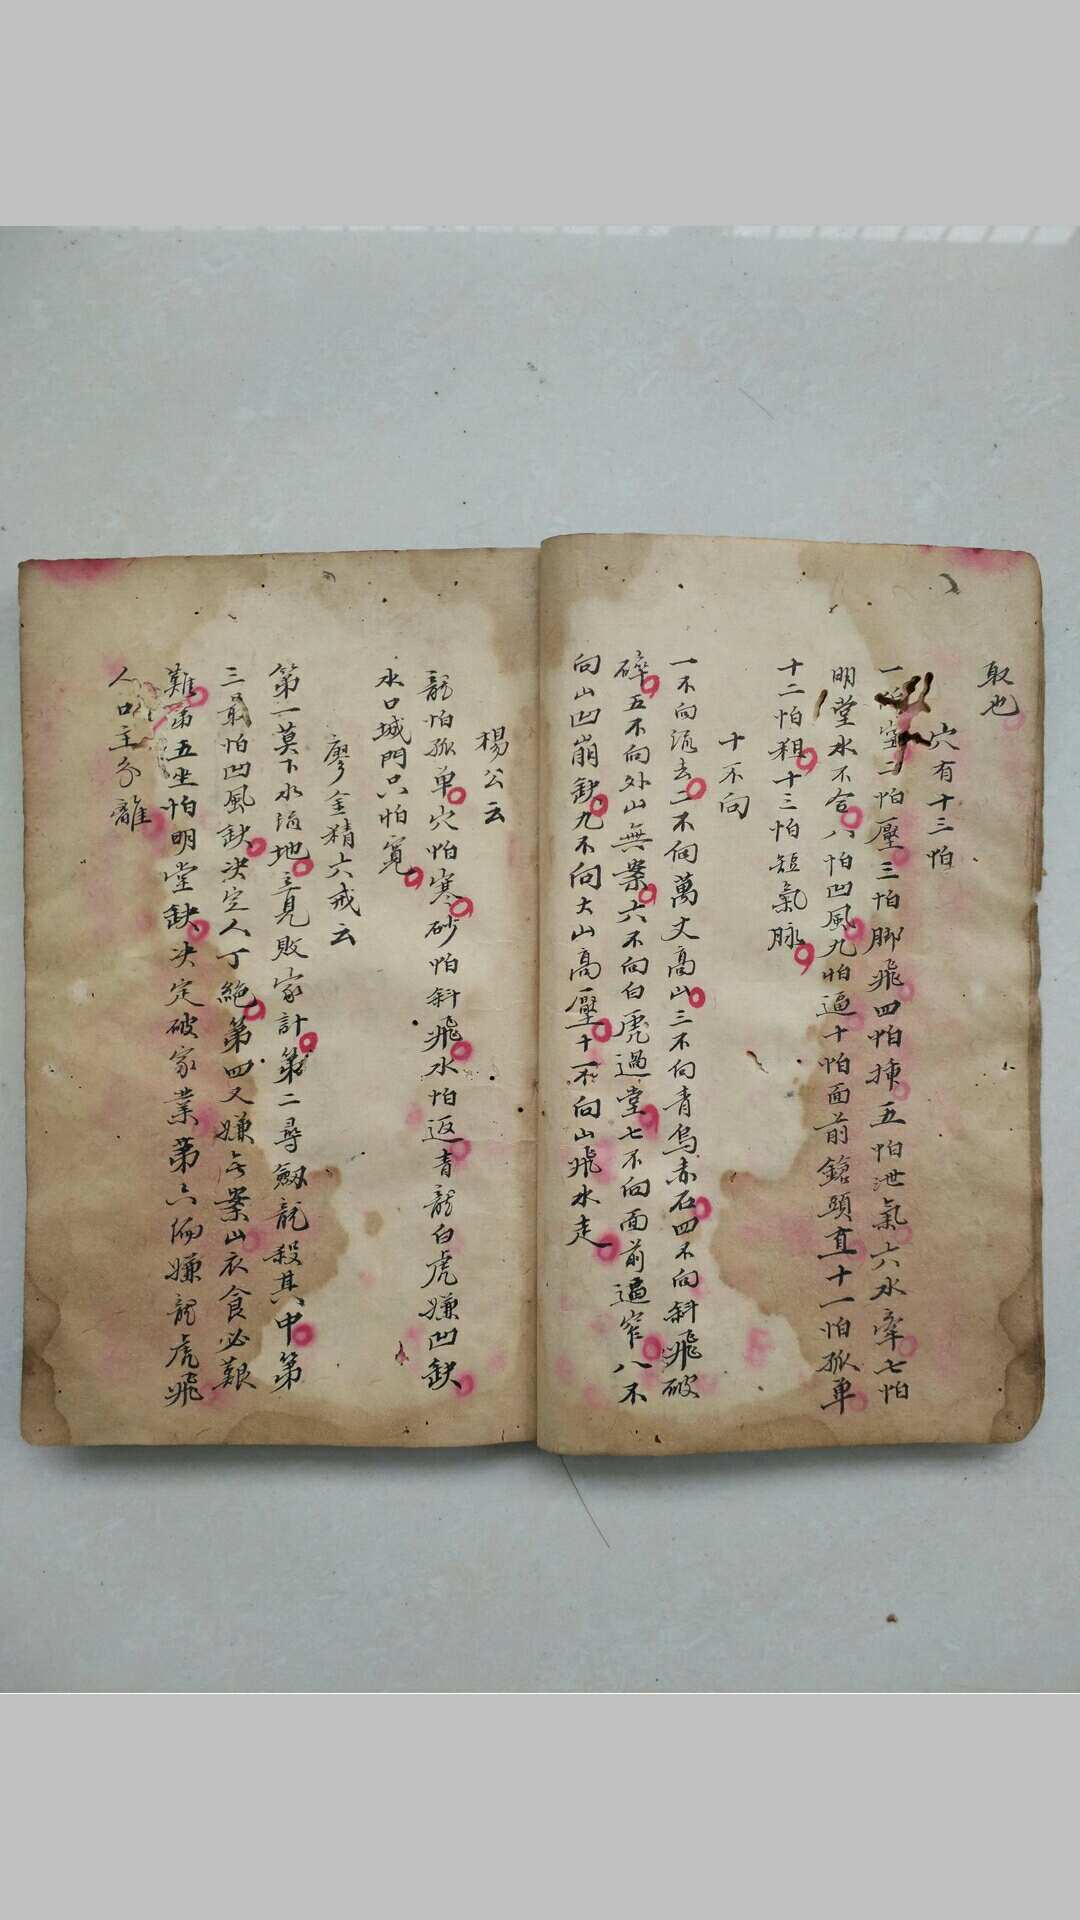 取也
穴有十三怕
一怕空二怕壓三怕脚飛四怕揷五怕泄氣六水牽七怕
明堂水不合八怕凹風九怕逼十怕面前鎗頭直十一怕孤单
十二怕粗十三怕短氣脉
十不向
一不向流去二不向萬丈高山三不向青烏赤石四不向斜飛破
碎五不向外山無案六不向白虎過堂七不向面前逼窄八不
向山凹崩缺九不向大山高壓十不向山飛水走
楊公云
龍怕孤单穴怕寒砂怕斜飛水怕返青龍白虎嫌凹缺
水口城門只怕寛
廖金精六戒云
第一莫下水流地立見敗家計第二尋劔龍殺其中第
三最怕凹風缺决定人丁絶第四又嫌無案山衣食必艱
難第五坐怕明堂缺决定破家業第六偏嫌龍虎飛
人口主分離